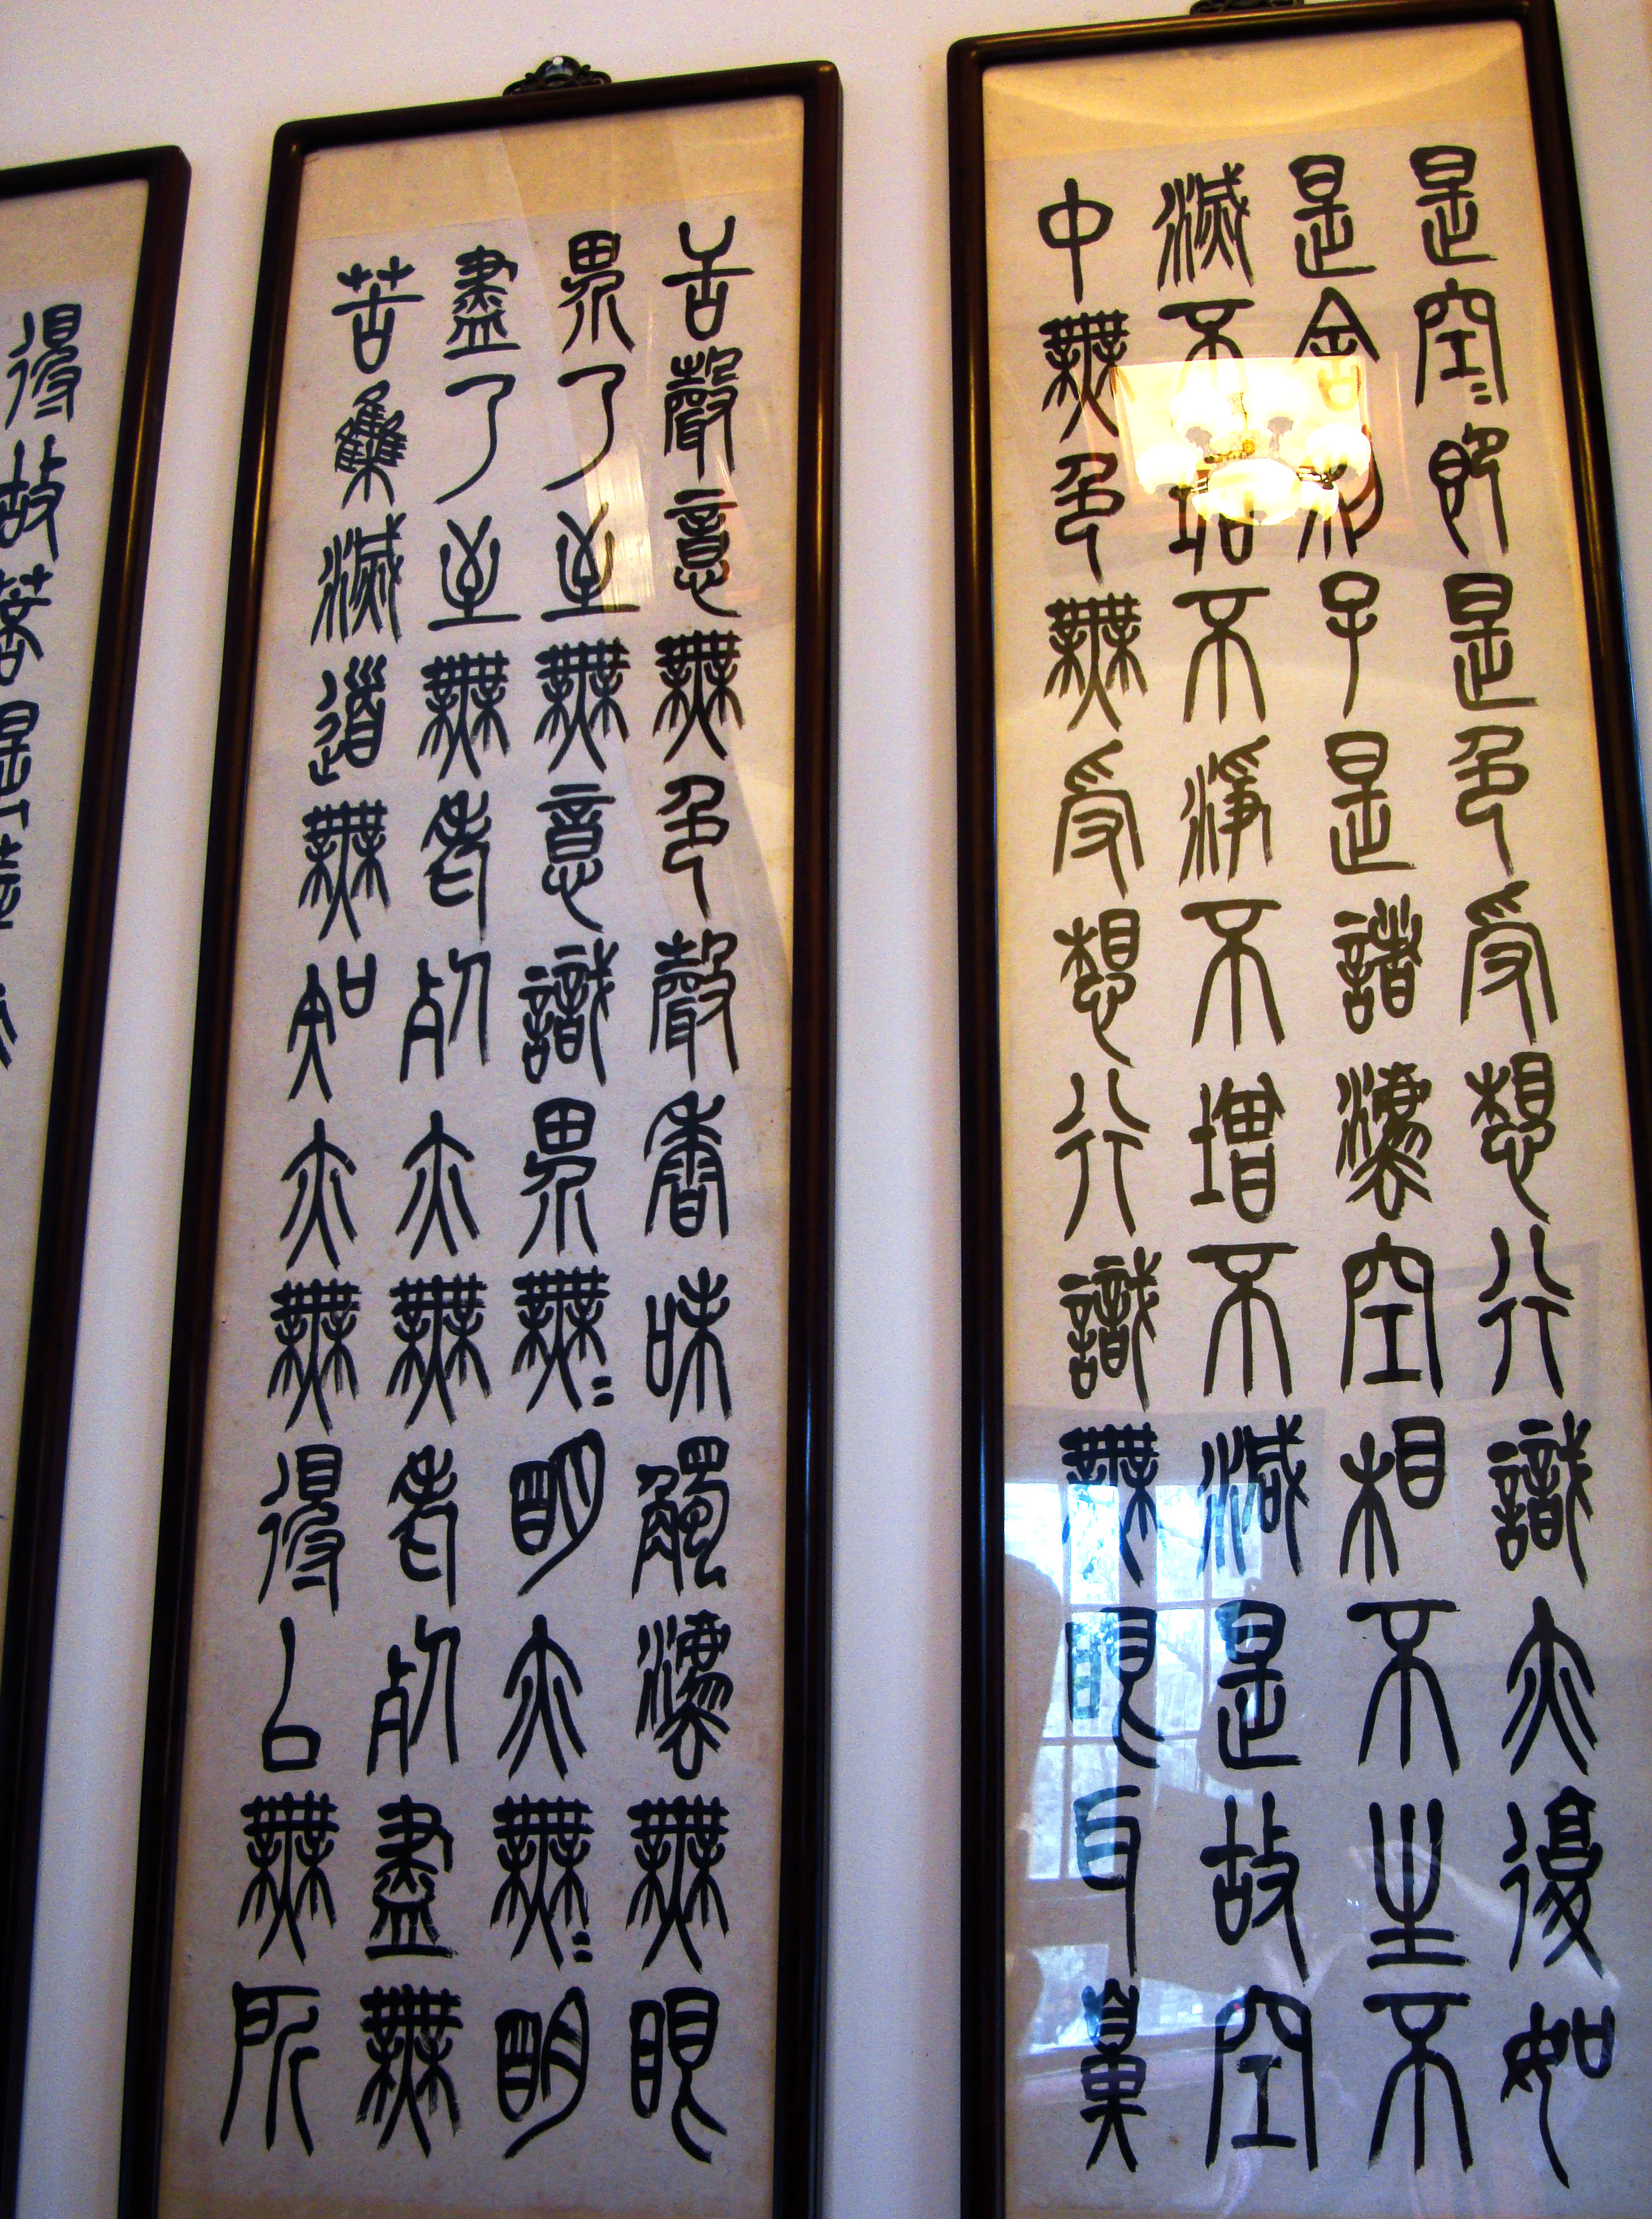 是空〻即是色受想行識亦復如
是舍利子是諸灋空相不生不
滅不垢不淨不增不減是故空
中無色無受想行識無眼耳鼻
舌聲意無色聲香味觸灋無眼
界乃至無意識界無〻明亦無〻明
盡乃至無老死亦無老死盡無
苦集滅道無知亦無得以無所
得故菩提薩